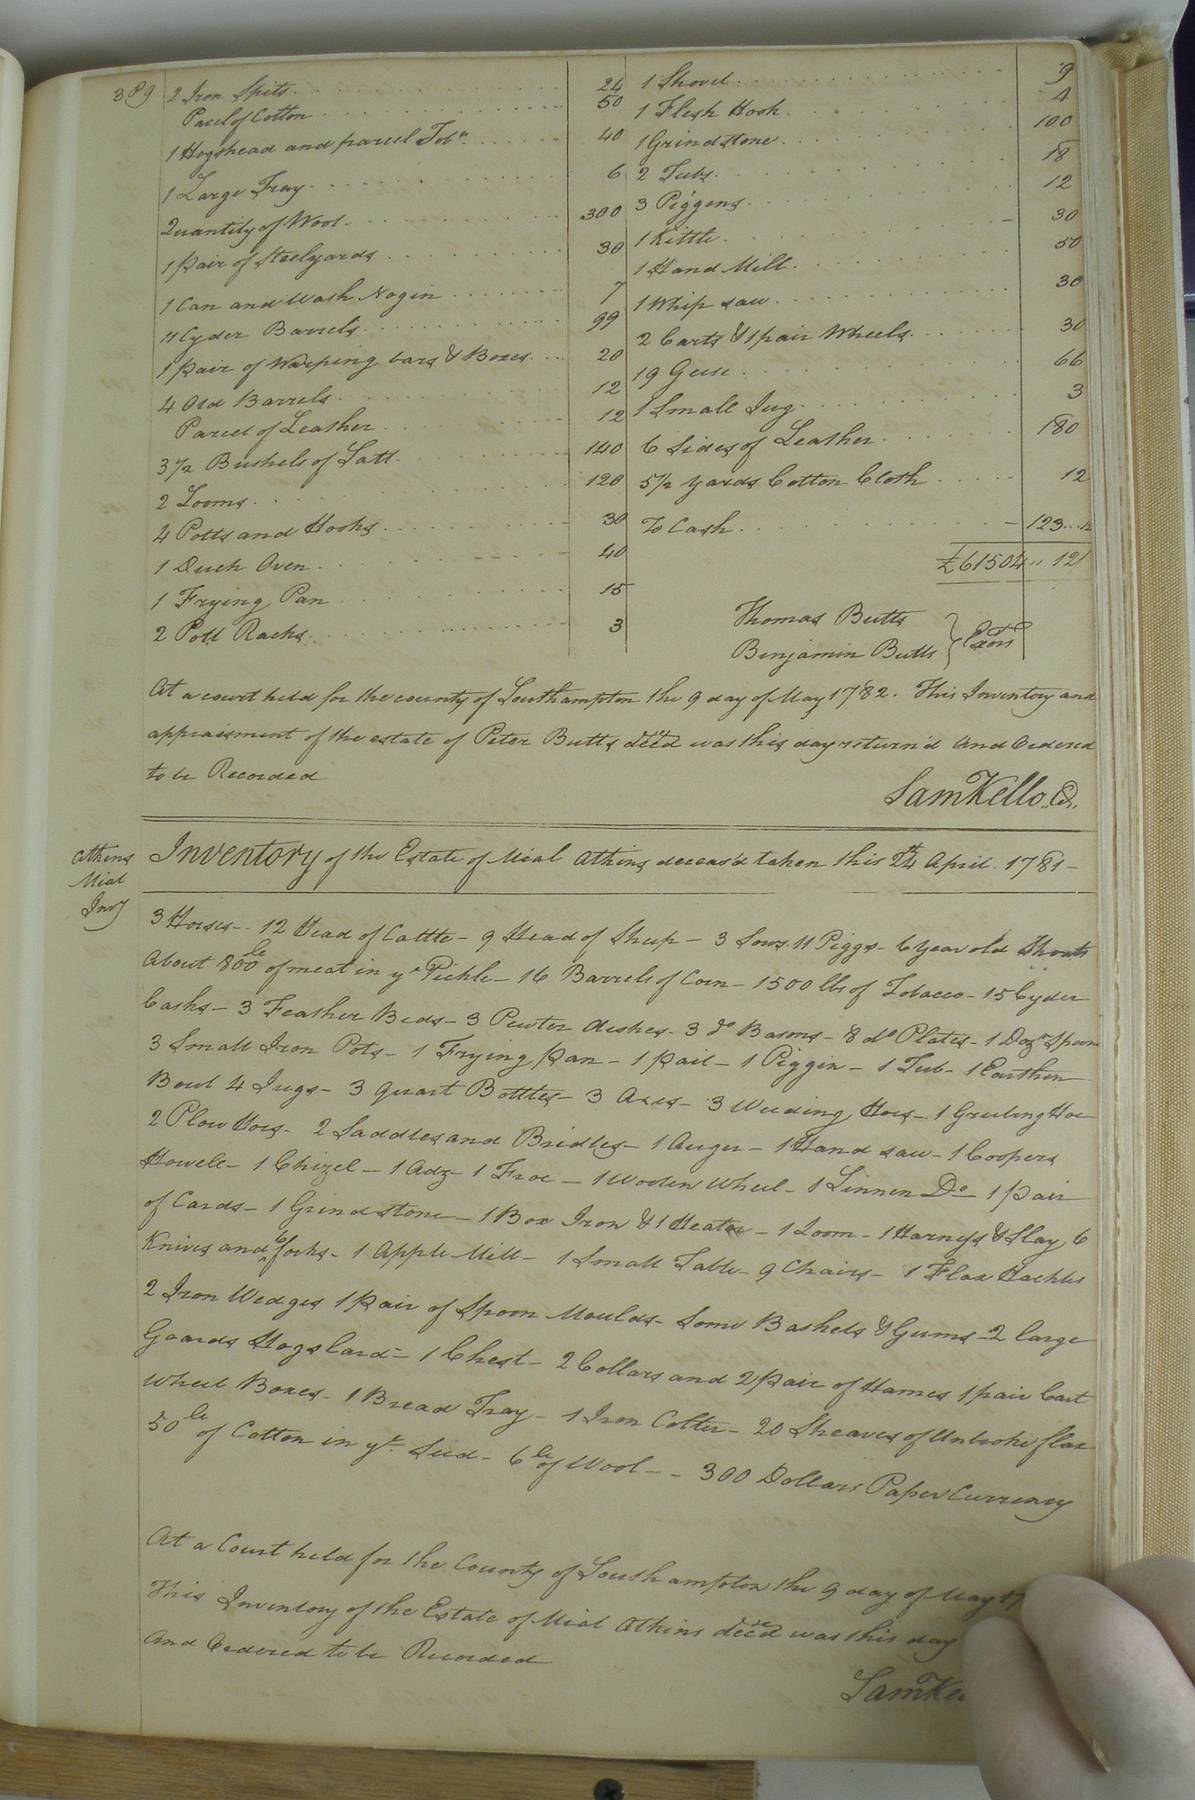 389
2 Iron Spits 24
Parcel of Cotton 50
1 Hogshead and parcel Tobo. 40
1 Large Tray 6
Quantity of Wool 300
1 pair of Steelyards 30
1 Can and Wash Nogin 7
11 Cyder Barrels 99
1 pair of Warping bars & Boxes 20
4 Old Barrels 12
Parcel of Leather 12
3 1/2 Bushels of Salt 140
2 Looms 120
4 Potts and Hooks 30
1 Duch Oven 40
1 Frying Pan 15
2 Pott Racks 3
1 Shovel 9
1 Flesh Hook 4
1 Grindstone 100
2 Tubs 18
3 Piggens 12
1 Kittle 30
1 Hand Mill 50
1 Whip saw 30
2 Carts & 1 pair Wheels 30
19 Geese 66
1 Small Jug 3
6 Sides of Leather 180
5 1/2 yards Cotton Cloth 12
To Cash 123
£61504 " 12
Thomas Butts
Benjamin Butts } Exors
At a court held for the county of Southampton the 9 day of May 1782. This Inventory and
appraisment of the estate of Peter Butts dec'd was this day return'd and Ordered
to be Recorded
Sam Kello. Cr.
Athins
Mial
Invy
Inventory of the Estate of Mial Athins deceas'd taken this 24th April 1781
3 Horses - 12 Head of Cattle - 9 Head of Sheep - 3 Sows. 11 Piggs - 6 year old Shoats
About 800 le of meat in ye Pickle - 16 Barrels of Corn - 1500 lbs of Tobacco - 15 Cyder
Casks - 3 Feather Beds - 3 Pewter dishes - 3 do Basons - 8 do Plates - 1 Dozn Spoons
3 Small Iron Pots - 1 Frying pan - 1 pail - 1 Piggin - 1 Tub - 1 Earthen
Bowl 4 Jugs - 3 quart Bottles - 3 Axes - 3 Weeding Hoes - 1 Grubing Hoe
2 Plow Hoes - 2 Saddles and Bridles - 1 Auger - 1 Hand saw - 1 Coopers
Howele - 1 Chizel - 1 Adz - 1 Froe - 1 Wooden Wheel - 1 Linnen Do 1 pair
of Cards - 1 Grindstone - 1 Box Iron & 1 Heater - 1 Loom - 1 Harnys & Slay 6
Knives and 6 forks - 1 Apple Mill - 1 Small Table - 9 Chairs - 1 Flax Hackles
2 Iron Wedges 1 pair of Spoon Moulds - Some Baskets & Gums - 2 large
Goards Hogs lard - 1 Chest - 2 Collars and 2 pair of Hames 1 pair Cart
wheel Boxes - 1 Bread Tray - 1 Iron Colter - 20 Sheaves of Unbroke flax
50 le of Cotton in ye Seed - 6 le of Wool - - 300 Dollars Paper Currency
At a Court held for the County of Southampton the 9 day of May 17
This Inventory of the Estate of Mial Athins dec'd was this day
and Ordered to be Recorded
Sam Ke